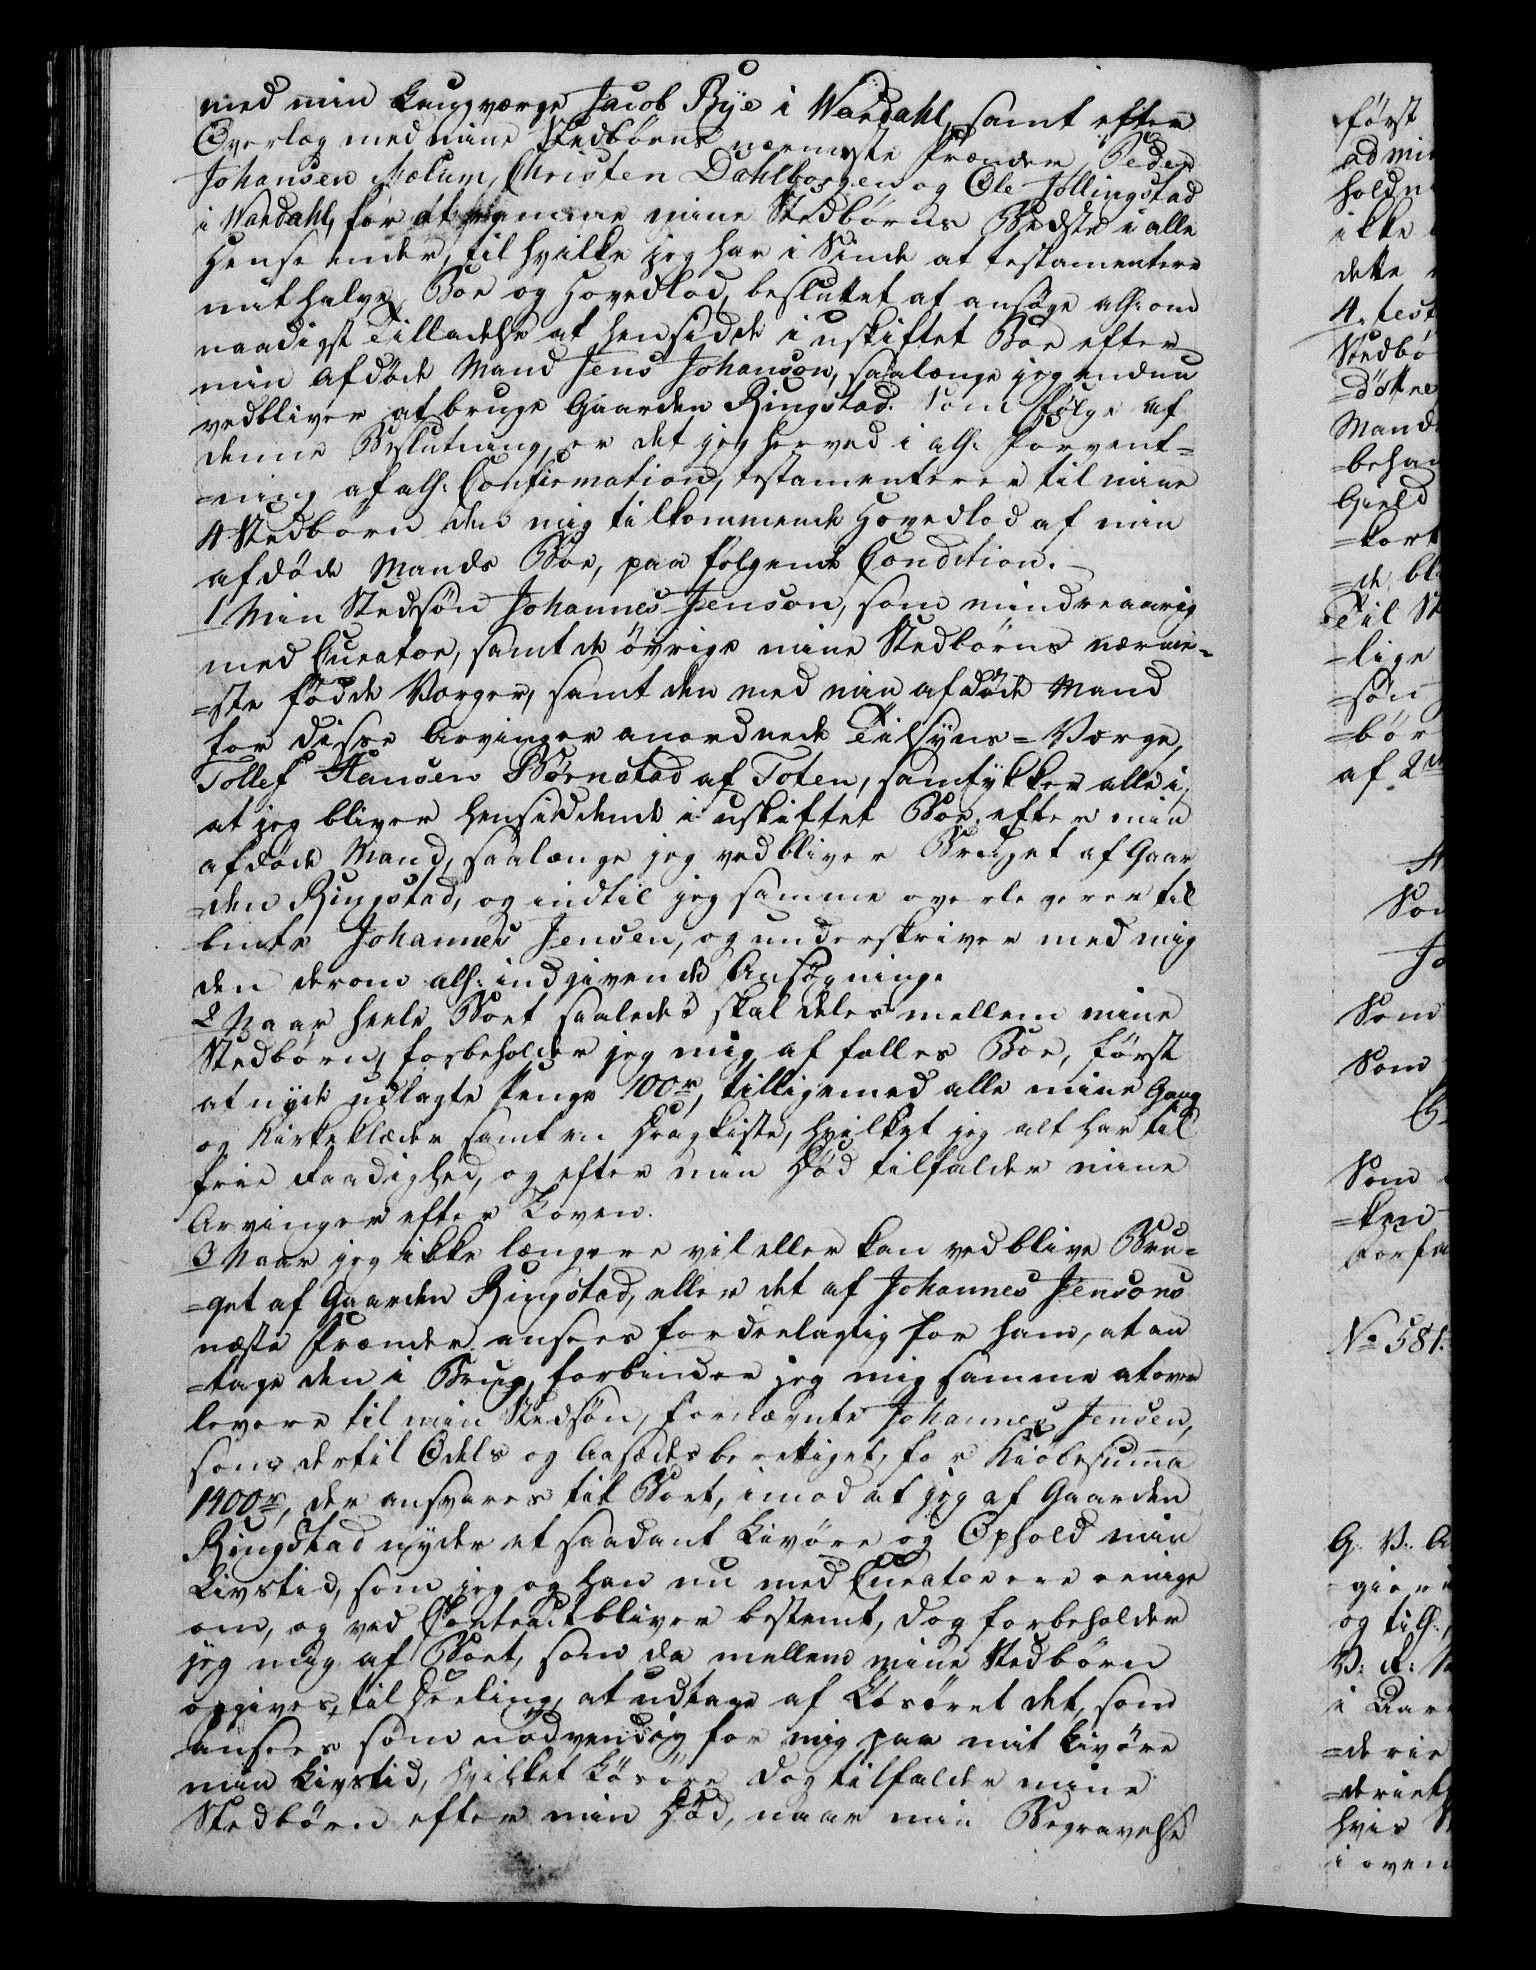 med min Laugværge Jacob Bÿe i Wardahl, samt efter
Overlæg med mine Stedbörns nærmeste Frænder, Peder
Johansen Mælum, Christen Dahlborgen og Ole Jollingstad
i Wardahl, for at fremme mine Stedbörns Bedste i alle
Henseender, til hvilke jeg har i Sinde at testamentere
mit halve Boe og Hovedlod, besluttet at ansöge all: om
naadigst Tilladelse at hensidde i uskiftet Boe efter
min afdöde Mand Jens Johanson, saalænge jeg endnu
vedbliver at bruge Gaarden Ringstad. Som Fölge af
denne Beslutning, er det jeg herved i all: Forvent-
=ning af all: Confirmation, testamenterer til mine
4 Stedbörn den mig tilkommende Hovedlod af min
afdöde Mands Boe, paa fölgende Condition. –
1 Min Stedsön Johannes Jenson, som mindreaarig
med Curator, samt de övrige mine Stedbörns nærme-
=ste födde Værger, samt den med min afdöde Mand
for disse Arvinger anordnede Tilsyns-Værge,
Tollef Hansen Börnstad af Toten, samtykker alle i,
at jeg bliver hensiddende i uskiftet Boe efter min
afdöde Mand, saalænge jeg vedbliver Bruget af Gaar
=den Ringstad, og indtil jeg samme overleverer til
bente Johannes Jensen, og underskriver med mig
den derom all: indgivende Ansögning.
2 Naar heele Boet saaledes skal deles mellem mine
Stedbörn, forbeholder jeg mig af fælles Boe, först
at nyde udlagte Penge 100 r, tilligemed alle mine Gang
og Kirkeklæder samt en Dragkiste, hvilket jeg alt har til
frie Raadighed, og efter min Död tilfalder mine
Arvinger efter Loven.
3 Naar jeg ikke længere vil eller kan vedblive Bru-
=get af Gaarden Ringstad, eller det af Johannes Jensons
næste Frænder ansees fordeelagtig for ham, at an
=tage den i Brug, forbinder jeg mig samme at over
levere til min Stedsön, fornævnte Johannes Jensen,
som dertil Odels og Aasædesberettiget, for Kiöbesumma
1400 r, der ansvares til Boet, imod at jeg af Gaarden
Ringstad nyder et saadant Livöre og Ophold min
Livstid, som jeg og han nu med Curator ere eenige
om, og ved Contract bliver bestemt, dog forbeholder
jeg mig af Boet, som da mellem mine Stedbörn
opgives til Deeling, at udtage af Lösöret det, som
ansees som nödvendig for mig paa mit Livöre
min Livstid, hvilket Lösöre dog tilfalder mine
Stedbörn efter min Död, naar min Begravelse
först
admin
holdn
ikke
dette
4. test
Stedbö
=döttre
Mand
=behan
Gield
=kort
=de bl
Til St
=lige
=sön
=bör
af 2
Som
Jo
Som
Som
Som
=ken
forfa
No 581.
G. V. A
=gier
og till:
i Aar
=derie
=deriet
hvis
i oven